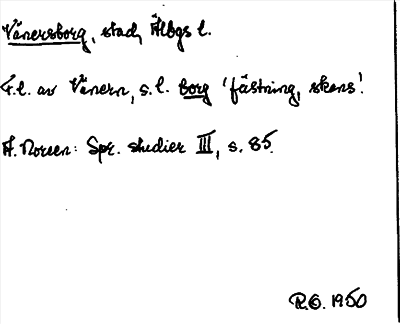 Vänersborg, stad, Älbgs l.
F.l. av Vänern, s.l. borg 'fästning, skans'.
A. Noreen: Spr. studier III, s. 85.
R.O. 1950